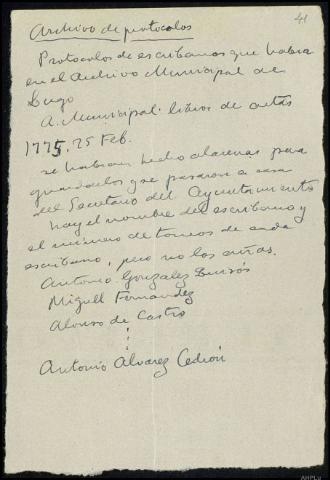 41
Archivo de protocolos
Protocolos de escribanos que había
en el Archivo Municipal de
Lugo
A. Municipal. libros de actas
1775. 25 Feb.
se habían hecho alacenas para
guardarlos y se pasaron a casa
del Secretario del Ayuntamiento
hay el nombre del escribano y
el número de tomos de cada
escribano, pero no los años.
Antonio Gonzalez
Miguel Fernandez
Alonso de Castro
Antonio Alvarez Cedrón
AHPLu